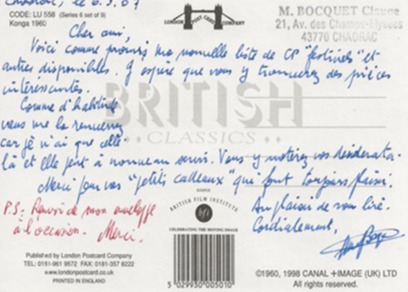 Chadrac, le 6.3.07
CODE: LU 558 (Series 6 set of 9)
Konga 1960
LONDON POST-CARD COMPANY
M. BOCQUET Claude
21, Av. des Champs-Elysées
43770 CHADRAC
Cher ami,
Voici comme promis ma nouvelle liste de CP "festivals" et
autres disponibles. J'espère que vous y trouverez des pièces
intéressantes.
Comme d'habitude
vous me la renverrez
car je n'ai que celle
là et elle peut à nouveau servir. Vous y noterez vos desiderata.
Merci pour vos "petits cadeaux" qui font toujours plaisir.
BRITISH
CLASSICS
P.S: Renvoi de mon enveloppe
à l'occasion. Merci.
Au plaisir de vous lire.
Cordialement,
BRITISH FILM INSTITUTE
CELEBRATING THE MOVING IMAGE
Published by London Postcard Company
TEL: 0151-961 9572 FAX: 0181-357 8222
www.londonpostcard.co.uk
PRINTED IN ENGLAND
5 029930 005010
©1960, 1998 CANAL +IMAGE (UK) LTD
All Rights Reserved